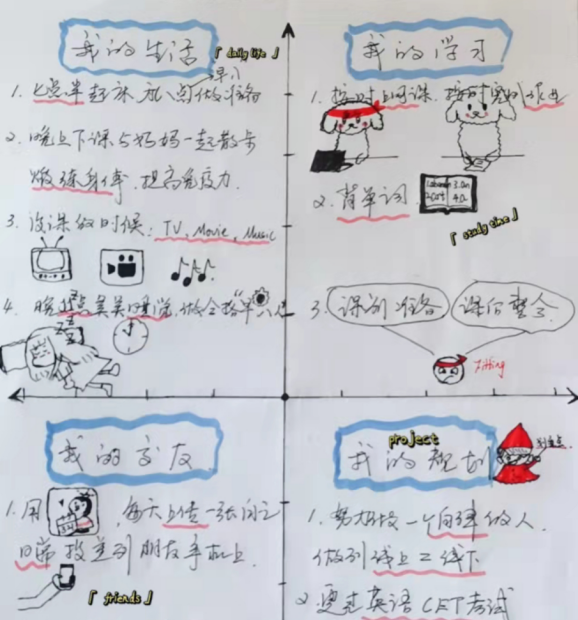 我的生活
「 daily life 」
1. 七点半起床, 八点做准备
早八
2. 晚上下课与妈妈一起散步
锻练身体, 提高免疫力.
3. 没课的时候: TV, Movie, Music
4. 晚11点美美睡觉,
zzz
我的学习
1. 按时上网课, 按时完成作业
2. 背单词
「 study time 」
3. 课前准备
课后整合
我的交友
1. 用
每天上传一张问候
到朋友手机上.
「 friends 」
project
我的规划
1. 努力做一个自律的人.
做到线上=线下
2. 通过英语CET考试